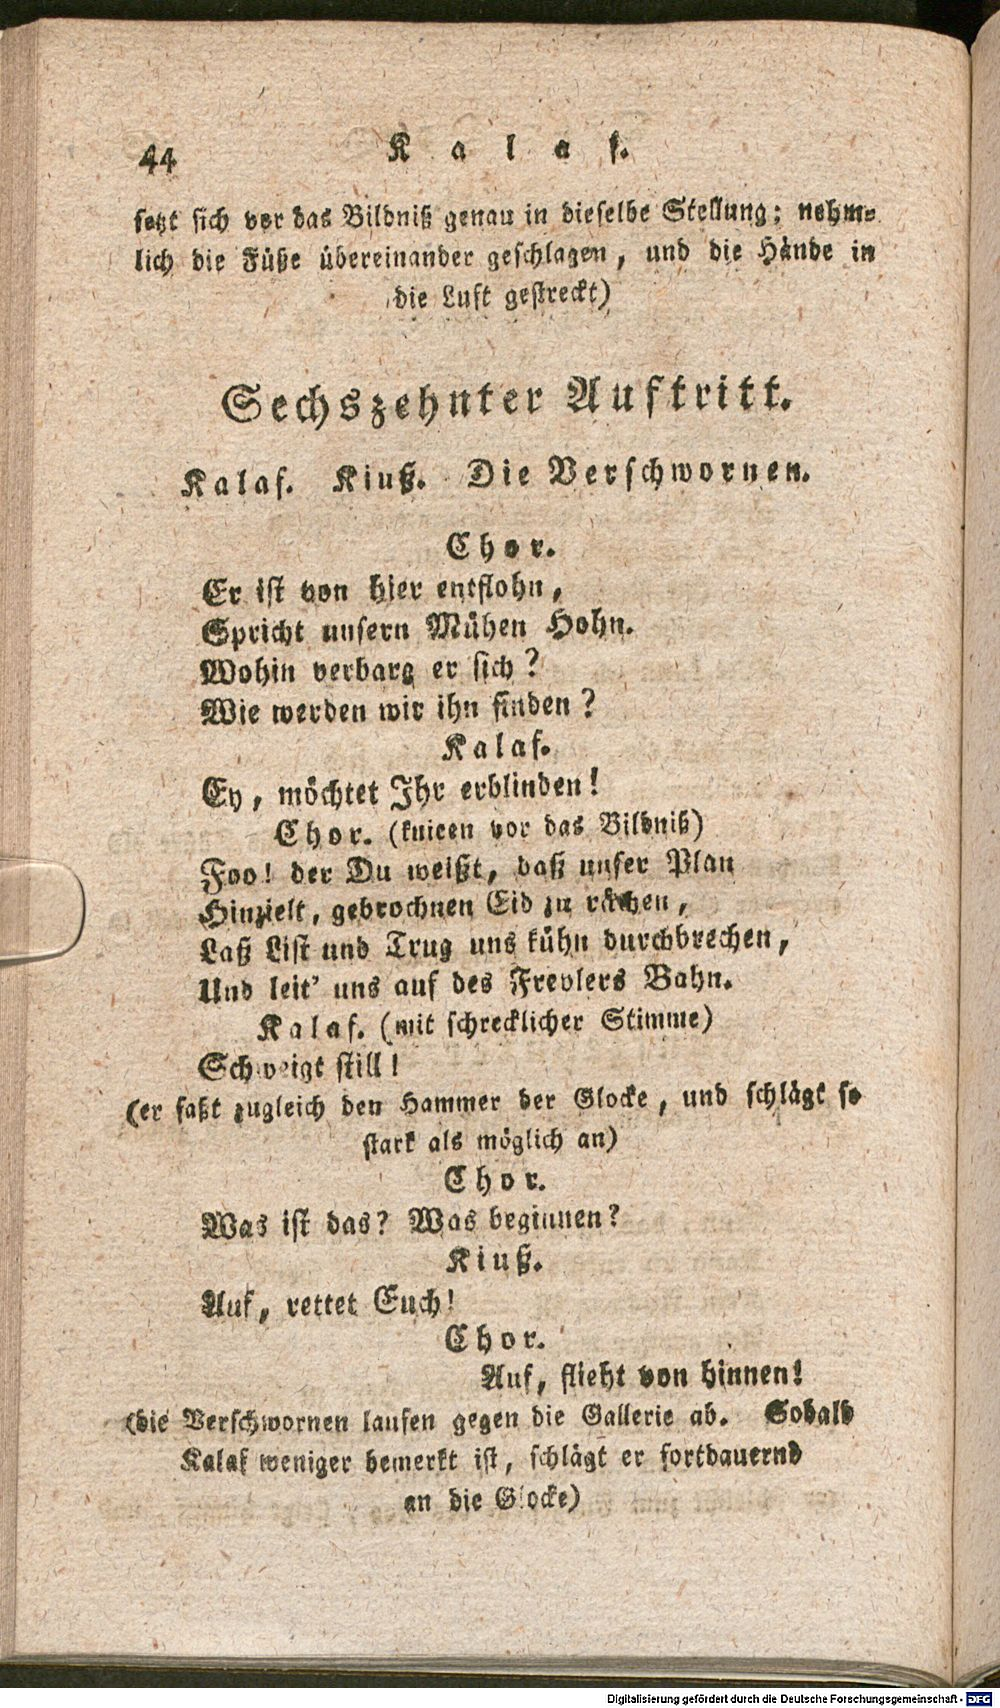 44
Kalaf.
setzt sich vor das Bildniß genau in dieselbe Stellung; nehm-
lich die Füße übereinander geschlagen, und die Hände in
die Luft gestreckt)
Sechszehnter Auftritt.
Kalaf. Kiuß. Die Verschwornen.
Chor.
Er ist von hier entflohn,
Spricht unsern Mühen Hohn.
Wohin verbarg er sich?
Wie werden wir ihn finden?
Kalaf.
Ey, möchtet Ihr erblinden!
Chor. (knieen vor das Bildniß)
Foo! der Du weißt, daß unser Plan
Hinzielt, gebrochnen Eid zu rächen,
Laß List und Trug uns kühn durchbrechen,
Und leit' uns auf des Frevlers Bahn.
Kalaf. (mit schrecklicher Stimme)
Schweigt still!
(er faßt zugleich den Hammer der Glocke, und schlägt so
stark als möglich an)
Chor.
Was ist das? Was beginnen?
Kiuß.
Auf, rettet Euch!
Chor.
Auf, flieht von hinnen!
(die Verschwornen laufen gegen die Gallerie ab. Sobald
Kalaf weniger bemerkt ist, schlägt er fortdauernd
an die Glocke)
Digitalisierung gefördert durch die Deutsche Forschungsgemeinschaft - DFG